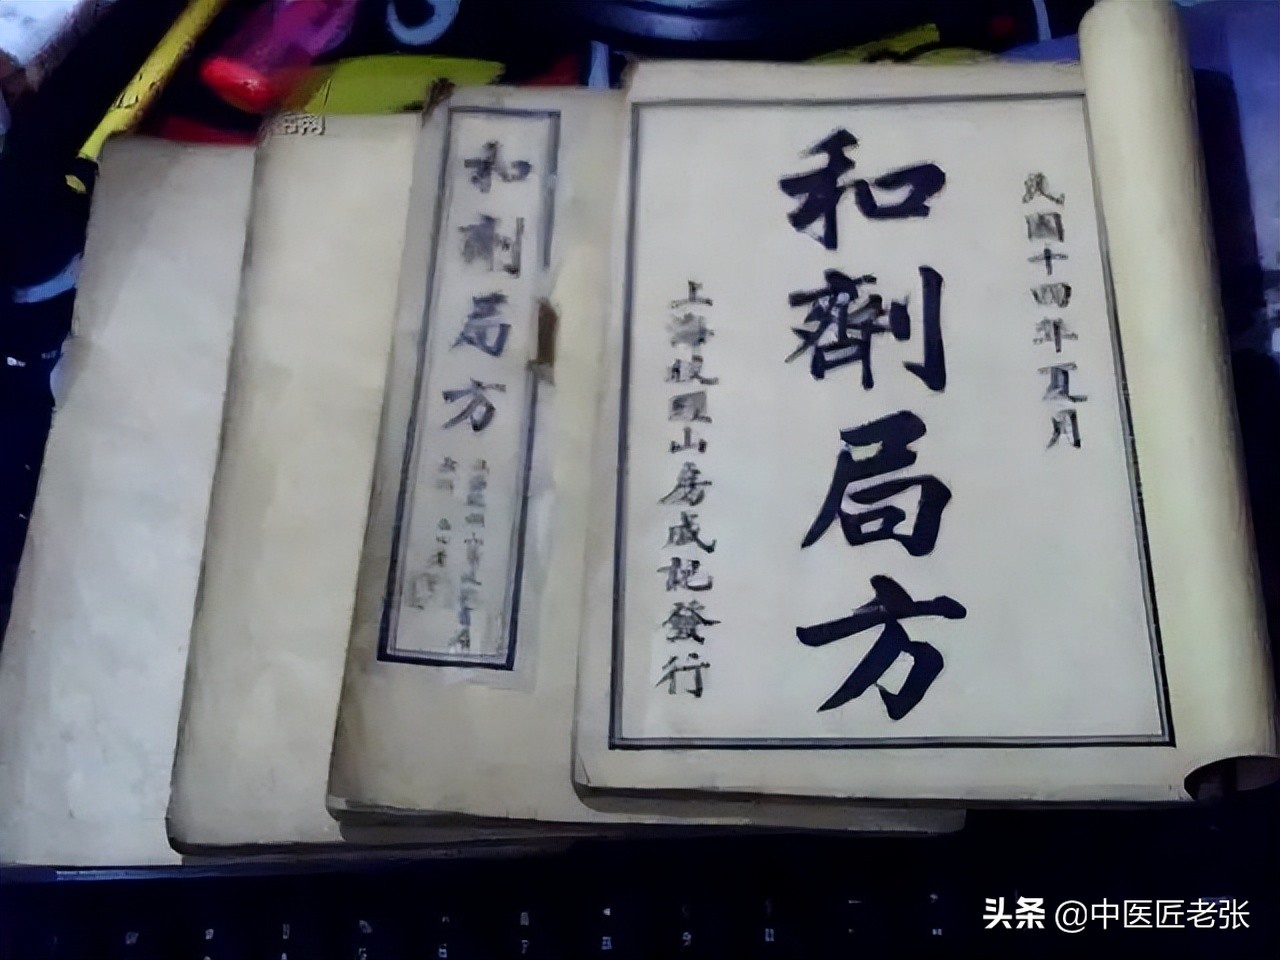 民國十四年夏月
和劑局方
上海校經山房成記發行
和劑局方
头条 @中医匠老张